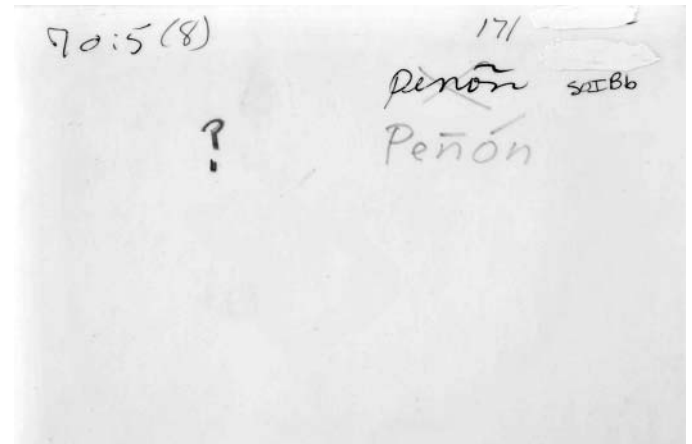 70:5 (8) 171
Penoñ SRIBb
? Peñón